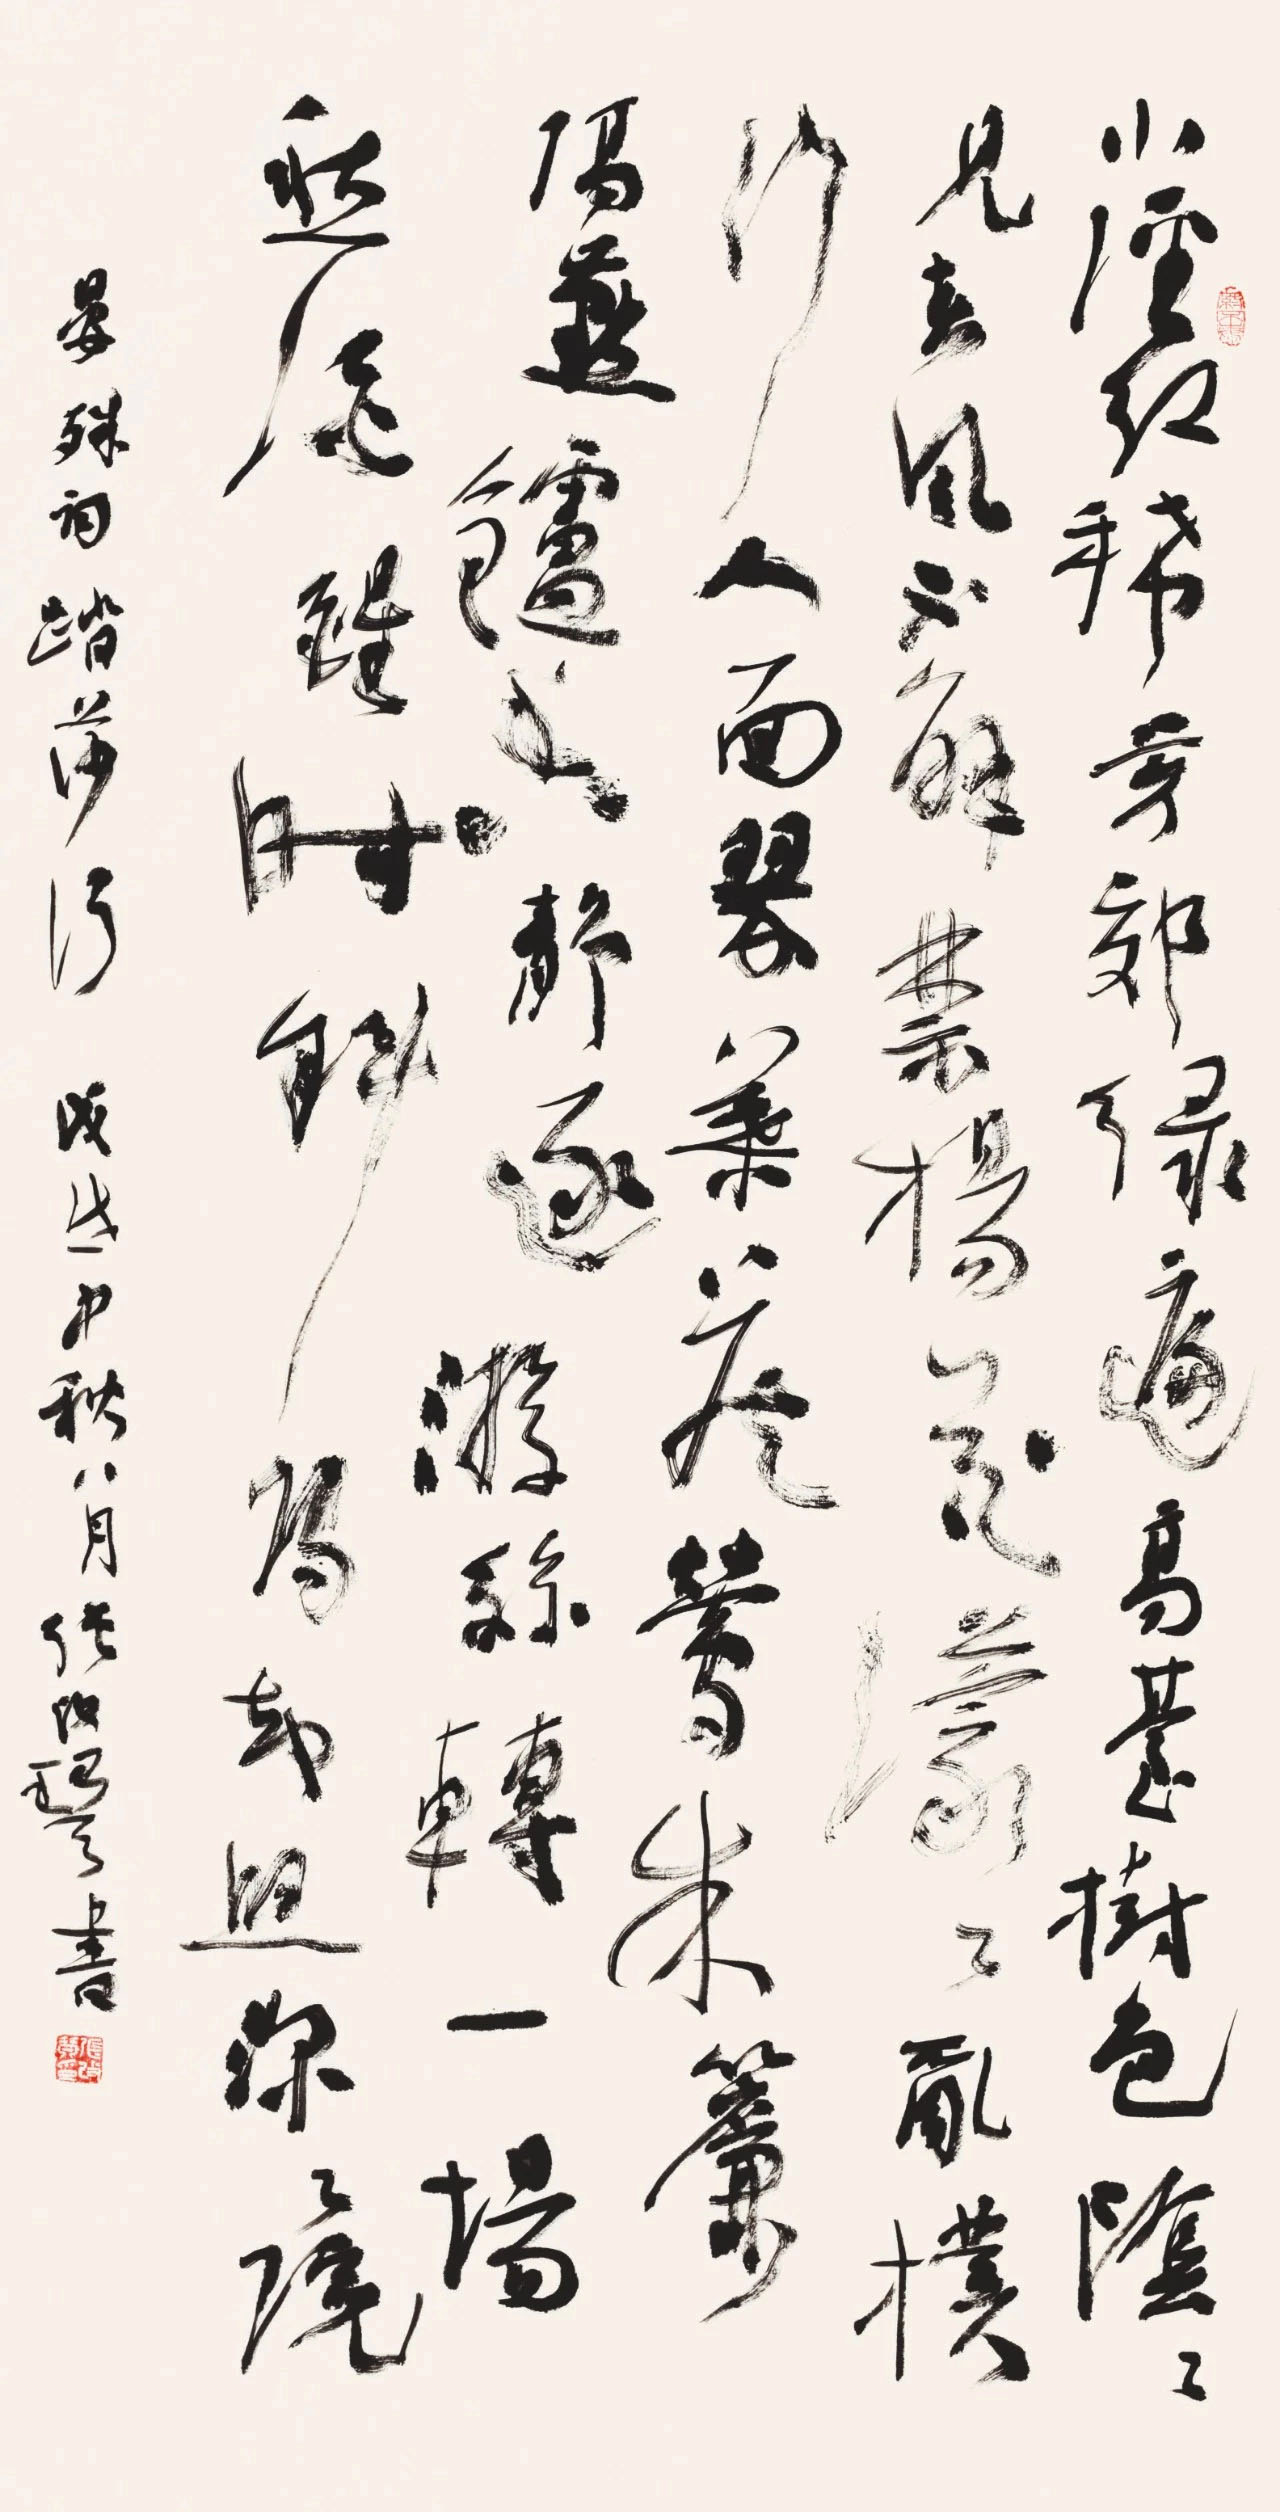 小径红稀芳郊绿遍高臺樹色陰〻
見春風不解禁楊花濛〻亂撲
行人面翠葉藏鶯朱簾
隔燕鑪香靜逐游絲轉一場
愁夢醒時斜陽却照深〻院
晏殊詞踏莎行 戊戌中秋八月張 書